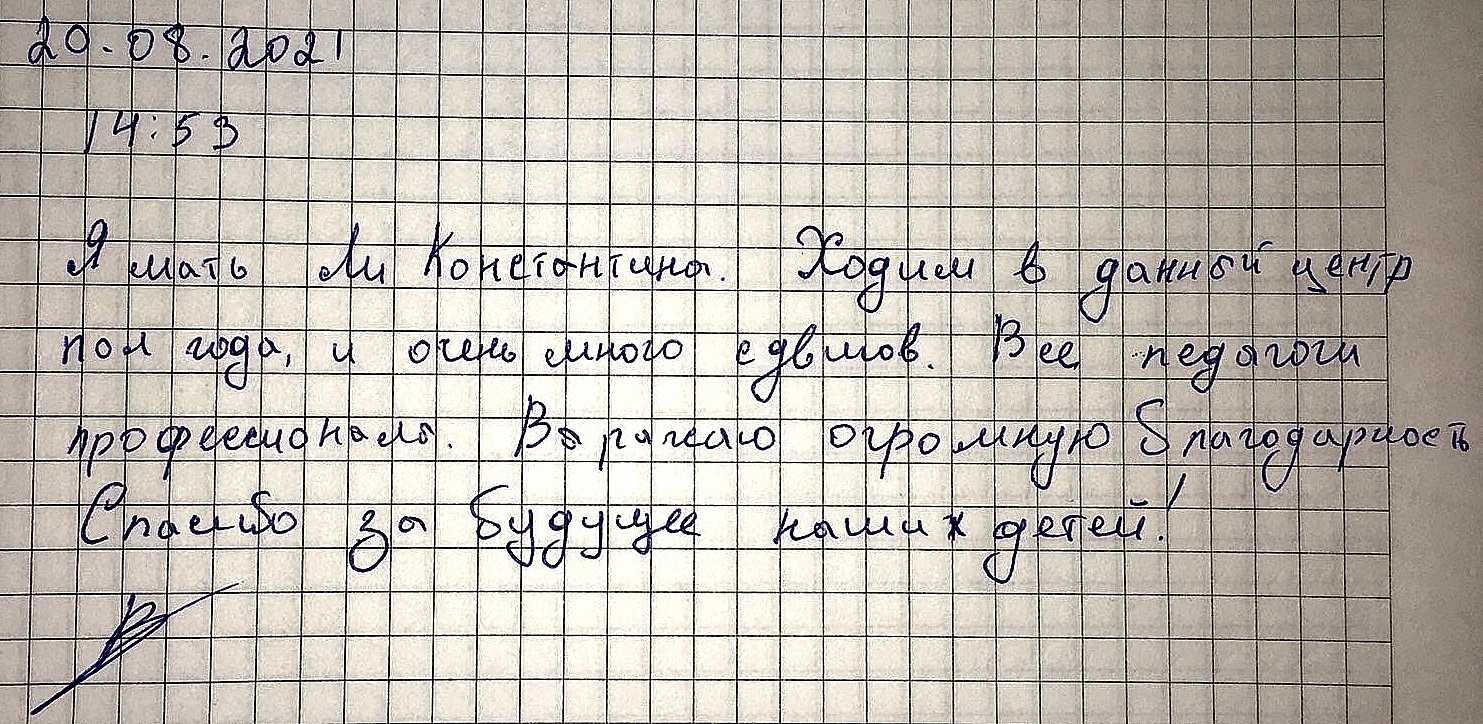 20.08.2021
14:53
Я мать Ли Константина. Ходим в данный центр
пол года, и очень много сдвигов. Все педагоги
профессионалы. Выражаю огромную благодарность
Спасибо за будущее наших детей!